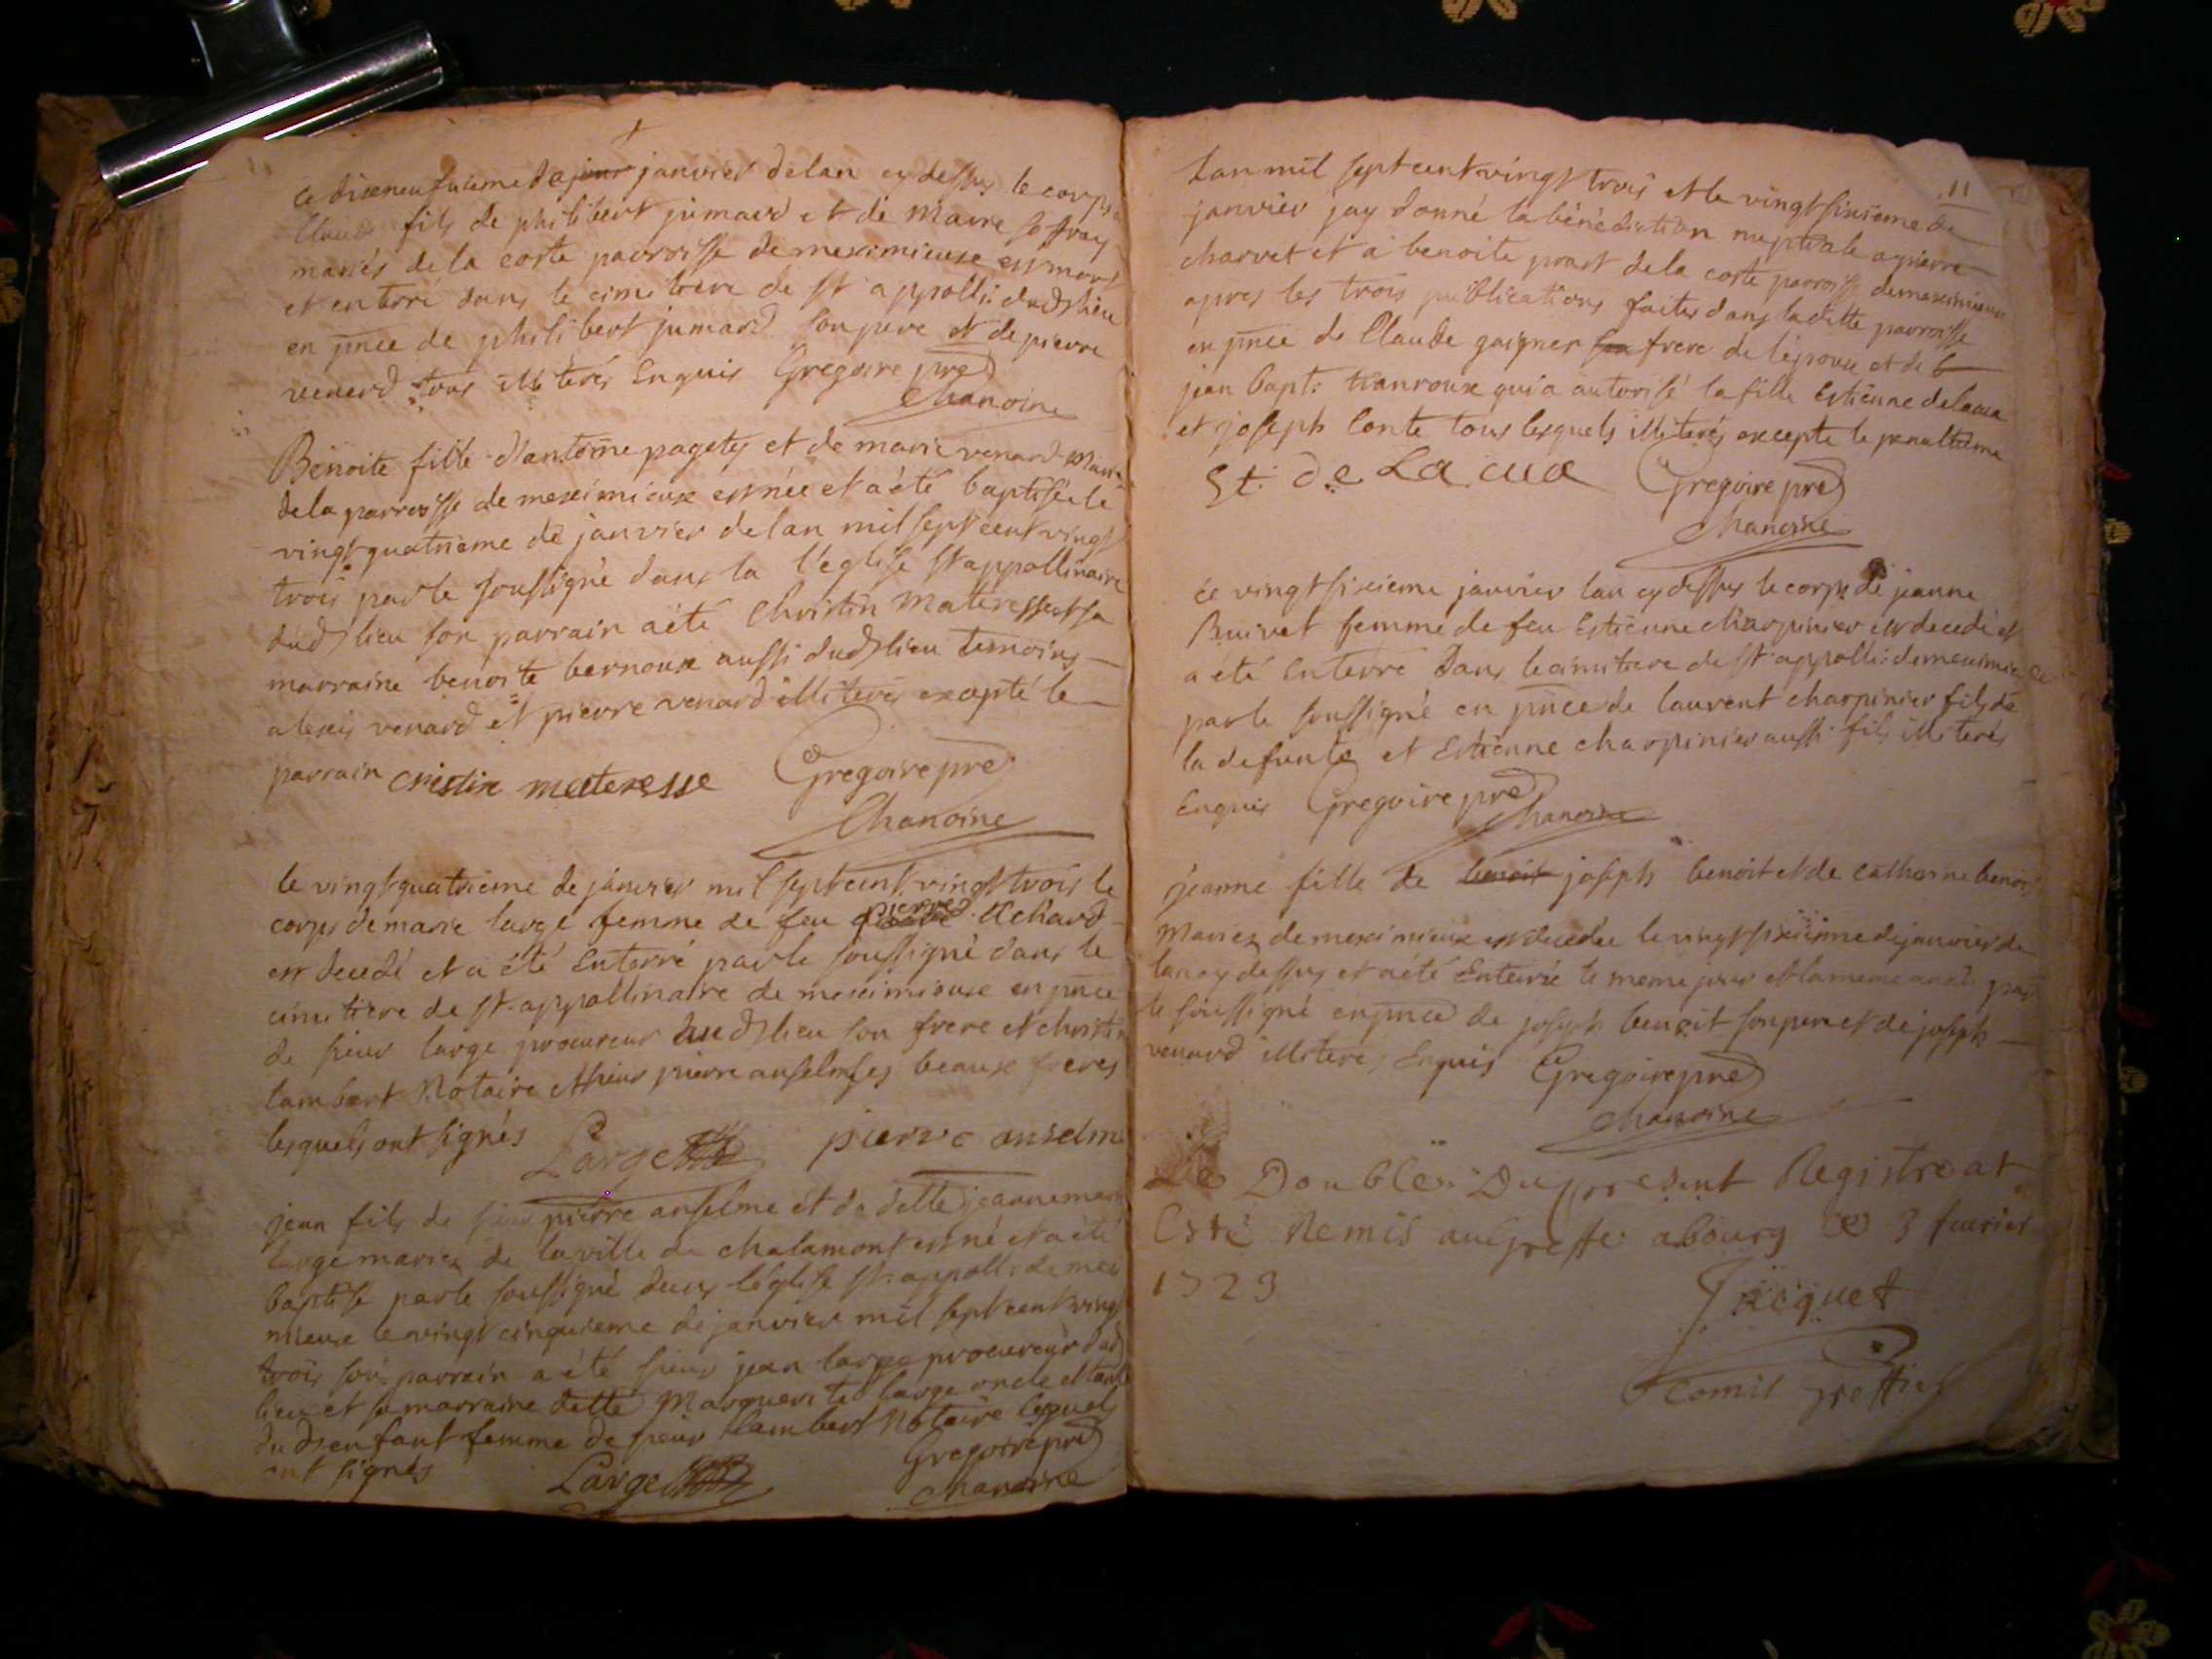 ce dixeneufvieme de jour janvier de lan cy dessus le corps de
Claude fils de philibert jumard et de Marie
mariés de la coste parroisse de meximieux est mort
et enterré dans le cimitiere de st appolli: dud lieu
en pnce de philibert jumard son pere et de pierre
venard tous illiterés Enquis Gregoire pre
Chanoine
Benoite fille d'antoine pagety et de marie venard Mariés
de la parroisse de meximieux est née et a été baptisée le
vingt quatrieme de janvier de lan mil sept cent vingt
trois par le soussigné dans la l'eglise st appollinaire
dud lieu son parrain a été Christin Materesse et sa
marraine benoite bernoux aussi dud lieu temoins
alexis venard et pierre venard illiterés excepté le
parrain cristin materesse Gregoire pre
Chanoine
le vingt quatrieme de janvier mil sept cent vingt trois le
corps de marie large femme de feu pierre Richard
est decedé et a été Enterré par le soussigné dans le
cimitiere de st appollinaire de meximieux en pnce
de sieur large procureur dud lieu son frere et christin
lambert Notaire et sieur pierre anselme ses beaux freres
lesquels ont signés Large pierre anselme
jean fils de sieur pierre anselme et de delle jeanne marie
large mariez de la ville de chalamont est né et a été
baptisé par le soussigné dans l'eglise st appolli: de mexi
mieux le vingt cinquieme de janvier mil sept cent vingt
trois son parrain a été sieur jean large procureur dud
lieu et sa marraine delle Marguerite large oncle et tante
dud enfant femme de sieur lambert Notaire lesquels
ont signés Large Gregoire pre
Chanoine
11
Lan mil sept cent vingt trois et le vingt sixieme de
janvier jay donné la bénédiction nuptiale a pierre
charvet et a benoite prart de la coste parroisse de meximieux
apres les trois publications faites dans la ditte parroisse
en pnce de Claude gaigner son frere de l'epoux et de b
jean bapt: tranroux qui a autorisé la fille Estienne delacua
et joseph Conte tous lesquels illiterés excepte le penultieme
St. De La cua Gregoire pre
Chanoine
ce vingt sixieme janvier lan cy dessus le corps de jeanne
Buivet femme de feu Estienne charpinier est decedé et
a été Enterré dans le cimitiere de st appolli: de meximieux
par le soussigné en pnce de laurent charpinier fils de
la defunte et Estienne charpinier aussi fils illiterés
Enquis Gregoire pre
Chanoine
jeanne fille de benoit joseph benoit et de catherine benoit
Mariez de meximieux est decedée le vingt sixieme de janvier de
lan cy dessus et a été Enterrée le meme jour et la meme année par
le soussigné en pnce de joseph benoit son pere et de joseph
venard illiterés Enquis Gregoire pre
Chanoine
Le Double Du present Registre at
Esté Remis au Greffe a bourg ce 3 fevrier
1723
Jacquet
Comis Greffier